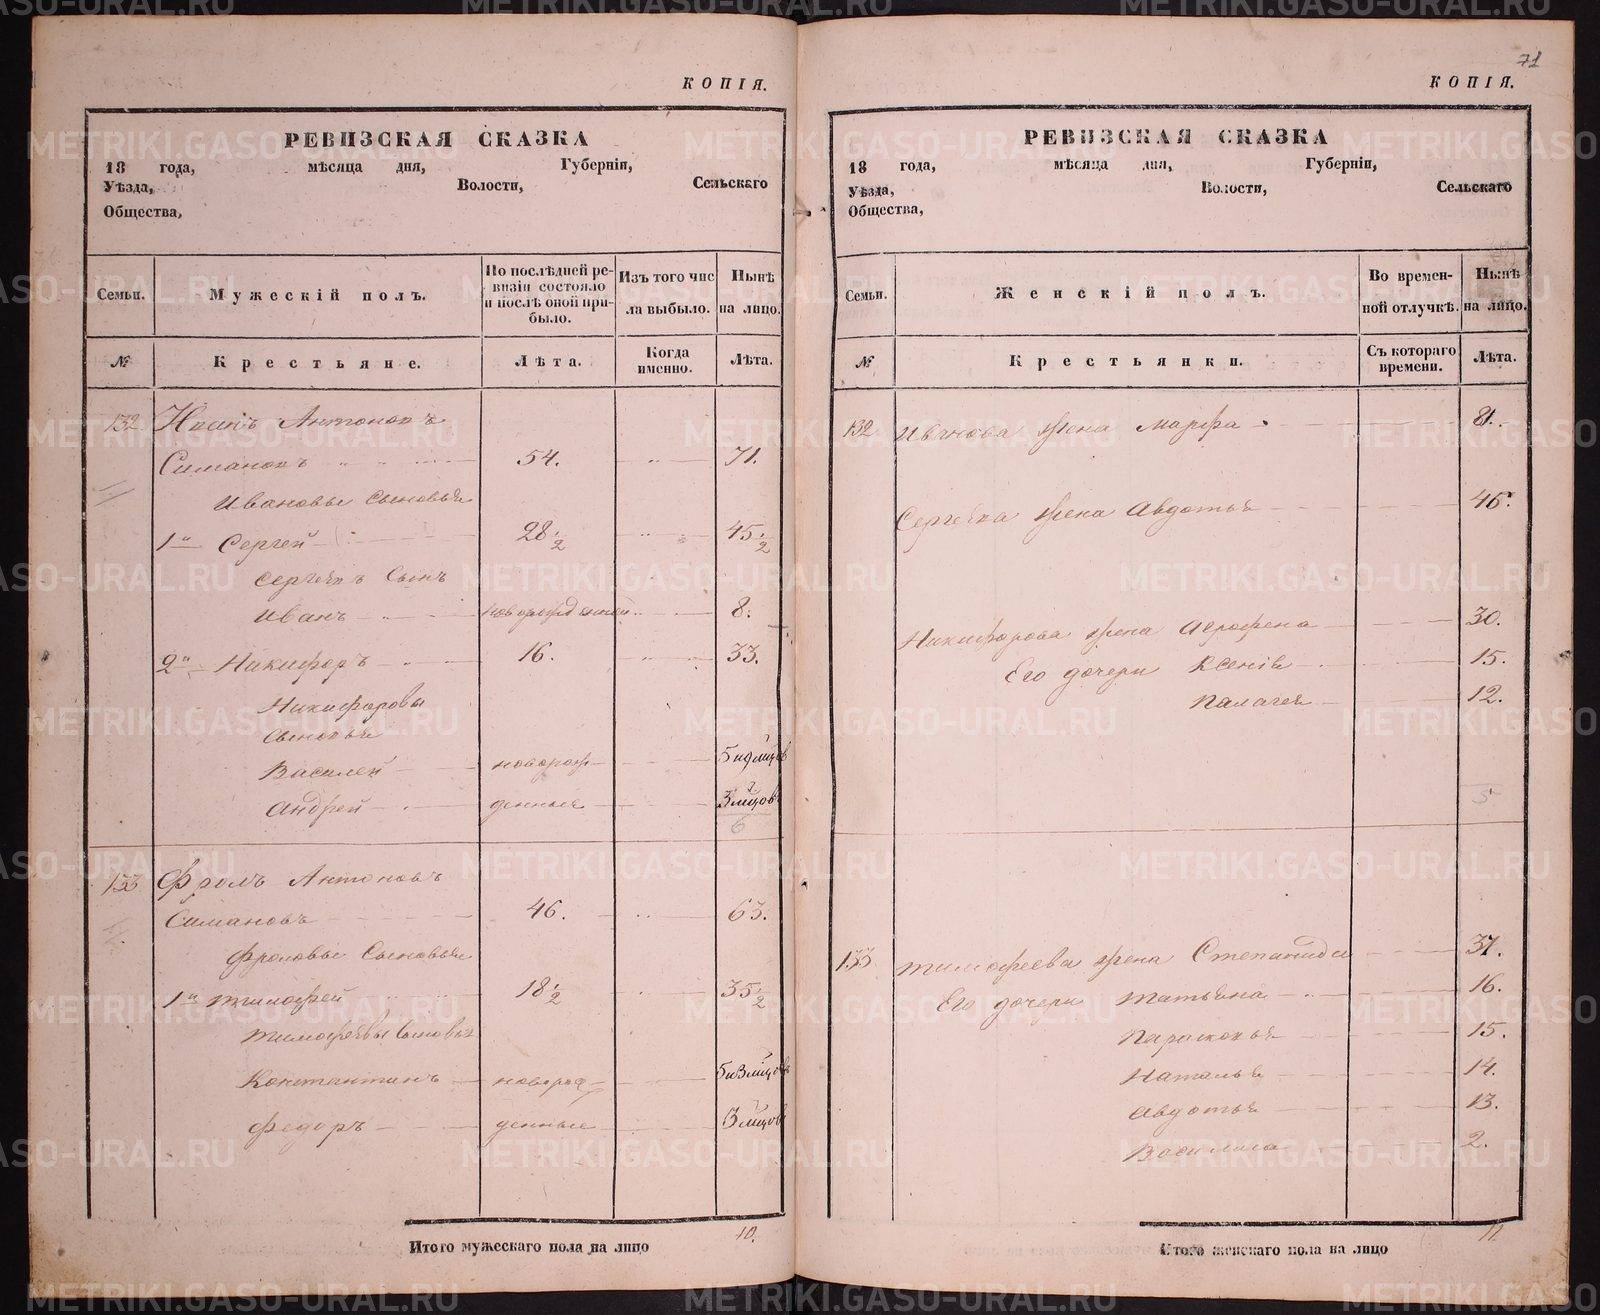 КОПІЯ.
РЕВИЗСКАЯ СКАЗКА
18 года, мѣсяца дня, Губерніи,
Уѣзда, Волости, Сельскаго
Общества,
Семьи. Мужескій полъ. По послѣдней ре-визіи состояло и послѣ оной при-было. Изъ того чис ла выбыло. Нынѣ на лицо.
№ Крестьяне. Лѣта. Когда именно. Лѣта.
132 Иванъ Антоновъ
Симановъ 54. 71.
Ивановы Сыновья
1й Сергей 28 1/2 45 1/2
Сергеевъ Сынъ
Иванъ новорожденной 8.
2й Никифоръ 16. 33.
Никифоровы
Сыновья
Василей новорож-
Андрей денные
6
133 Фролъ Антоновъ
Симановъ 46. 63.
Фроловы Сыновья
1й Тимофей 18 1/2 35 1/2
Тимофеевы Сыновья
Константинъ новорож-
Федоръ денные
10.
Итого мужескаго пола на лицо
71
КОПІЯ.
РЕВИЗСКАЯ СКАЗКА
18 года, мѣсяца дня, Губерніи,
Уѣзда, Волости, Сельскаго
Общества,
Семьи. Женскій полъ. Во времен-ной отлучкѣ. Нынѣ на лицо.
№ Крестьянки. Съ котораго времени. Лѣта.
132 Иванова жена Марфа 81.
Сергеева жена Авдотья 46.
Никифорова жена Агрофена 30.
Его дочери Ксенія 15.
Палагея 12.
5
133 Тимофеева жена Степанида 37.
Его дочери Татьяна 16.
Парасковья 15.
Наталья 14.
Авдотья 13.
Василиса 2.
11
Итого женскаго пола на лицо
METRIKI.GASO-URAL.RU